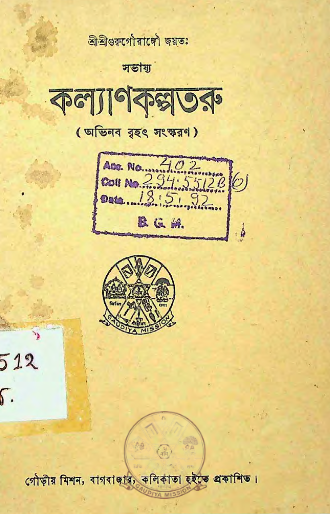 শ্রীশ্রীগুরুগৌরাঙ্গৌ জয়তঃ
সভাষ্য
কল্যাণকল্পতরু
( অভিনব বৃহৎ সংস্করণ )
Acc. No. 402
Coll No. 294.5512B(6)
Date. 18.5.92
B. G. M.
GAUDIYA MISSION
512
গৌড়ীয় মিশন, বাগবাজার, কলিকাতা হইতে প্রকাশিত।
GAUDIYA MISSION